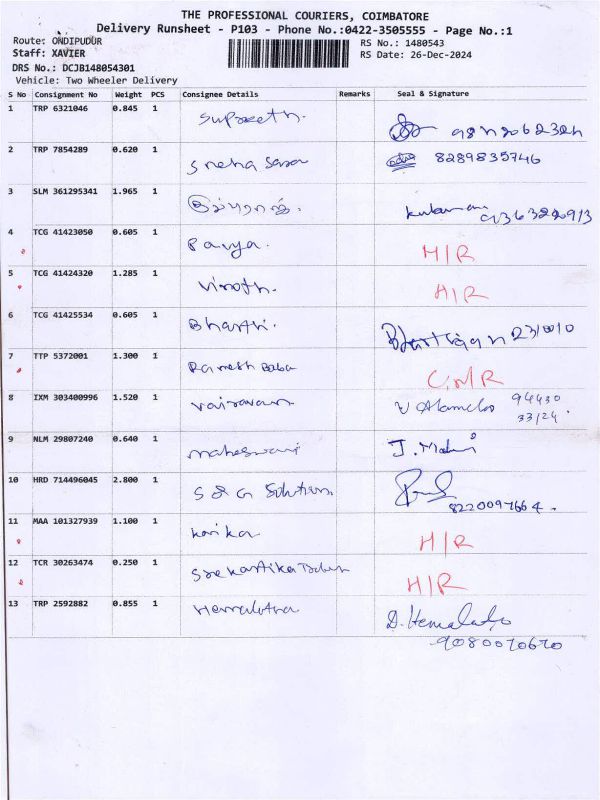 THE PROFESSIONAL COURIERS, COIMBATORE
Delivery Runsheet - P103 - Phone No.:0422-3505555 - Page No.:1
Route: ONDIPUDUR
Staff: XAVIER
DRS No.: DCJB148054301
Vehicle: Two Wheeler Delivery
RS No.: 1480543
RS Date: 26-Dec-2024
S No Consignment No Weight PCS Consignee Details Remarks Seal & Signature
1 TRP 6321046 0.845 1 Supreeth.
2 TRP 7854289 0.620 1 Sneha 8289835746
3 SLM 361295341 1.965 1
4 TCG 41423050 0.605 1 Pavya. H/R
5 TCG 41424320 1.285 1 Vinoth. H/R
6 TCG 41425534 0.605 1 Bharthi.
7 TTP 5372001 1.300 1 Ramesh Babu C.N/R
8 IXM 303400996 1.520 1 Vairavan V Alamelu 94430
33/24.
9 NLM 29807240 0.640 1 maheswari J.
10 HRD 714496045 2.800 1 S & G Solution
8220097664.
11 MAA 101327939 1.100 1 H/R
12 TCR 30263474 0.250 1 H/R
13 TRP 2592882 0.855 1 Hemalatha D. Hemalatha
9080070670